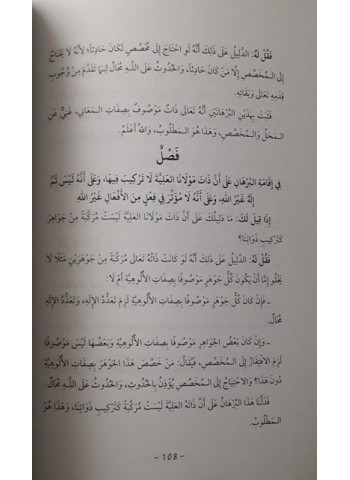 فَقُلْ لَهُ: الدَّلِيلُ عَلَى ذَلِكَ أَنَّهُ لَوِ احْتَاجَ إِلَى مُخَصِّصٍ لَكَانَ حَادِثاً؛ لِأَنَّهُ لَا يَحْتَاجُ
إِلَى المُخَصِّصِ إِلَّا مَنْ كَانَ حَادِثاً، وَالحُدُوثُ عَلَى اللهِ مُحَالٌ لِمَا تَقَدَّمَ مِنْ وُجُوبِ
قِدَمِهِ تَعَالَى وَبَقَائِهِ.
فَثَبَتَ بِهَذَيْنِ البُرْهَانَيْنِ أَنَّهُ تَعَالَى ذَاتٌ مَوْصُوفٌ بِصِفَاتِ المَعَانِي، غَنِيٌّ عَنِ
المَحَلِّ وَالمُخَصِّصِ، وَهَذَا هُوَ المَطْلُوبُ، وَاللهُ أَعْلَمُ.
فَصْلٌ
فِي إِقَامَةِ البُرْهَانِ عَلَى أَنَّ ذَاتَ مَوْلَانَا العَلِيَّةَ لَا تَرْكِيبَ فِيهَا، وَعَلَى أَنَّهُ لَيْسَ ثَمَّ
إِلَهٌ غَيْرُ اللهِ، وَعَلَى أَنَّهُ لَا مُؤَثِّرَ فِي فِعْلٍ مِنَ الأَفْعَالِ غَيْرُ اللهِ
إِذَا قِيلَ لَكَ: مَا دَلِيلُكَ عَلَى أَنَّ ذَاتَ مَوْلَانَا العَلِيَّةَ لَيْسَتْ مُرَكَّبَةً مِنْ جَوَاهِرَ
كَتَرْكِيبِ ذَوَاتِنَا؟
فَقُلْ لَهُ: الدَّلِيلُ عَلَى ذَلِكَ أَنَّهُ لَوْ كَانَتْ ذَاتُهُ تَعَالَى مُرَكَّبَةً مِنْ جَوْهَرَيْنِ مَثَلًا لَا
يَخْلُو إِمَّا أَنْ يَكُونَ كُلُّ جَوْهَرٍ مَوْصُوفًا بِصِفَاتِ الأُلُوهِيَّةِ أَمْ لَا:
ـ فَإِنْ كَانَ كُلُّ جَوْهَرٍ مَوْصُوفًا بِصِفَاتِ الأُلُوهِيَّةِ لَزِمَ تَعَدُّدُ الإِلَهِ، وَتَعَدُّدُ الإِلَهِ
مُحَالٌ.
ـ وَإِنْ كَانَ بَعْضُ الجَوَاهِرِ مَوْصُوفًا بِصِفَاتِ الأُلُوهِيَّةِ وَبَعْضُهَا لَيْسَ مَوْصُوفًا
لَزِمَ الافْتِقَارُ إِلَى المُخَصِّصِ، فَيُقَالُ: مَنْ خَصَّصَ هَذَا الجَوْهَرَ بِصِفَاتِ الأُلُوهِيَّةِ
دُونَ هَذَا؟ وَالاحْتِيَاجُ إِلَى المُخَصِّصِ يُؤْذِنُ بِالحُدُوثِ، وَالحُدُوثُ عَلَى اللهِ مُحَالٌ.
فَدَلَّنَا هَذَا البُرْهَانُ عَلَى أَنَّ ذَاتَهُ العَلِيَّةَ لَيْسَتْ مُرَكَّبَةً كَتَرْكِيبِ ذَوَاتِنَا، وَهَذَا هُوَ
المَطْلُوبُ.
- 108 -